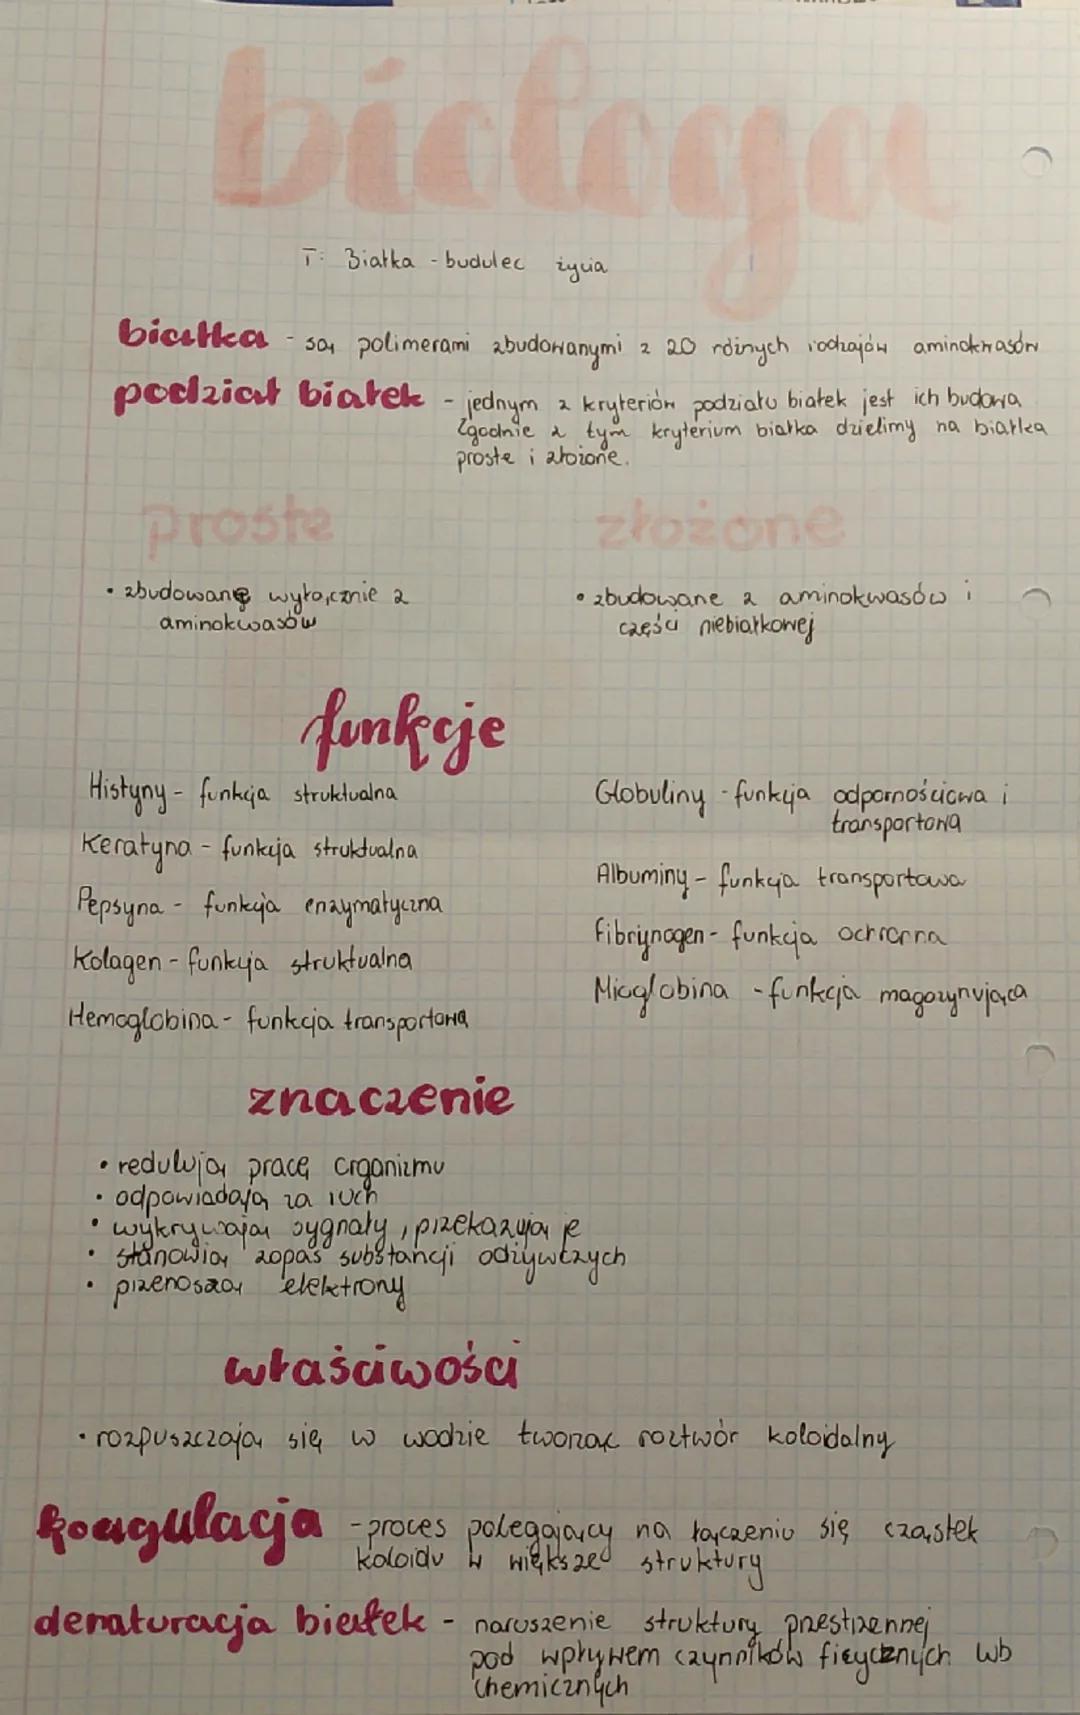 biologa
T: Białka - budulec życia
białka - są polimerami zbudowanymi z 20 różnych rodzajów aminokwasów
podział białek - jednym z kryteriów podziału białek jest ich budowa
Zgodnie z tym kryterium białka dzielimy na białka
proste i złożone.
proste
złożone
• zbudowane wyłącznie z
aminokwasów
• zbudowane z aminokwasów i
części niebiałkowej
funkcje
Histyny - funkcja struktualna
Keratyna - funkcja struktualna
Pepsyna - funkcja enzymatyczna
Kolagen - funkcja struktualna
Hemoglobina - funkcja transportowa
Globuliny - funkcja odpornościowa i
transportowa
Albuminy - funkcja transportowa
Fibrynogen - funkcja ochronna
Mioglobina - funkcja magazynująca
znaczenie
• redulują pracę organizmu
• odpowiadają za ruch
• wykrywają sygnały, przekazują je
• stanowią zapas substancji odżywczych
• przenoszą elektrony
właściwości
• rozpuszczają się w wodzie tworząc roztwór koloidalny
koagulacja - proces polegający na łączeniu się cząstek
koloidu w większe struktury
denaturacja białek - naruszenie struktury przestrzennej
pod wpływem czynników fizycznych lub
chemicznych